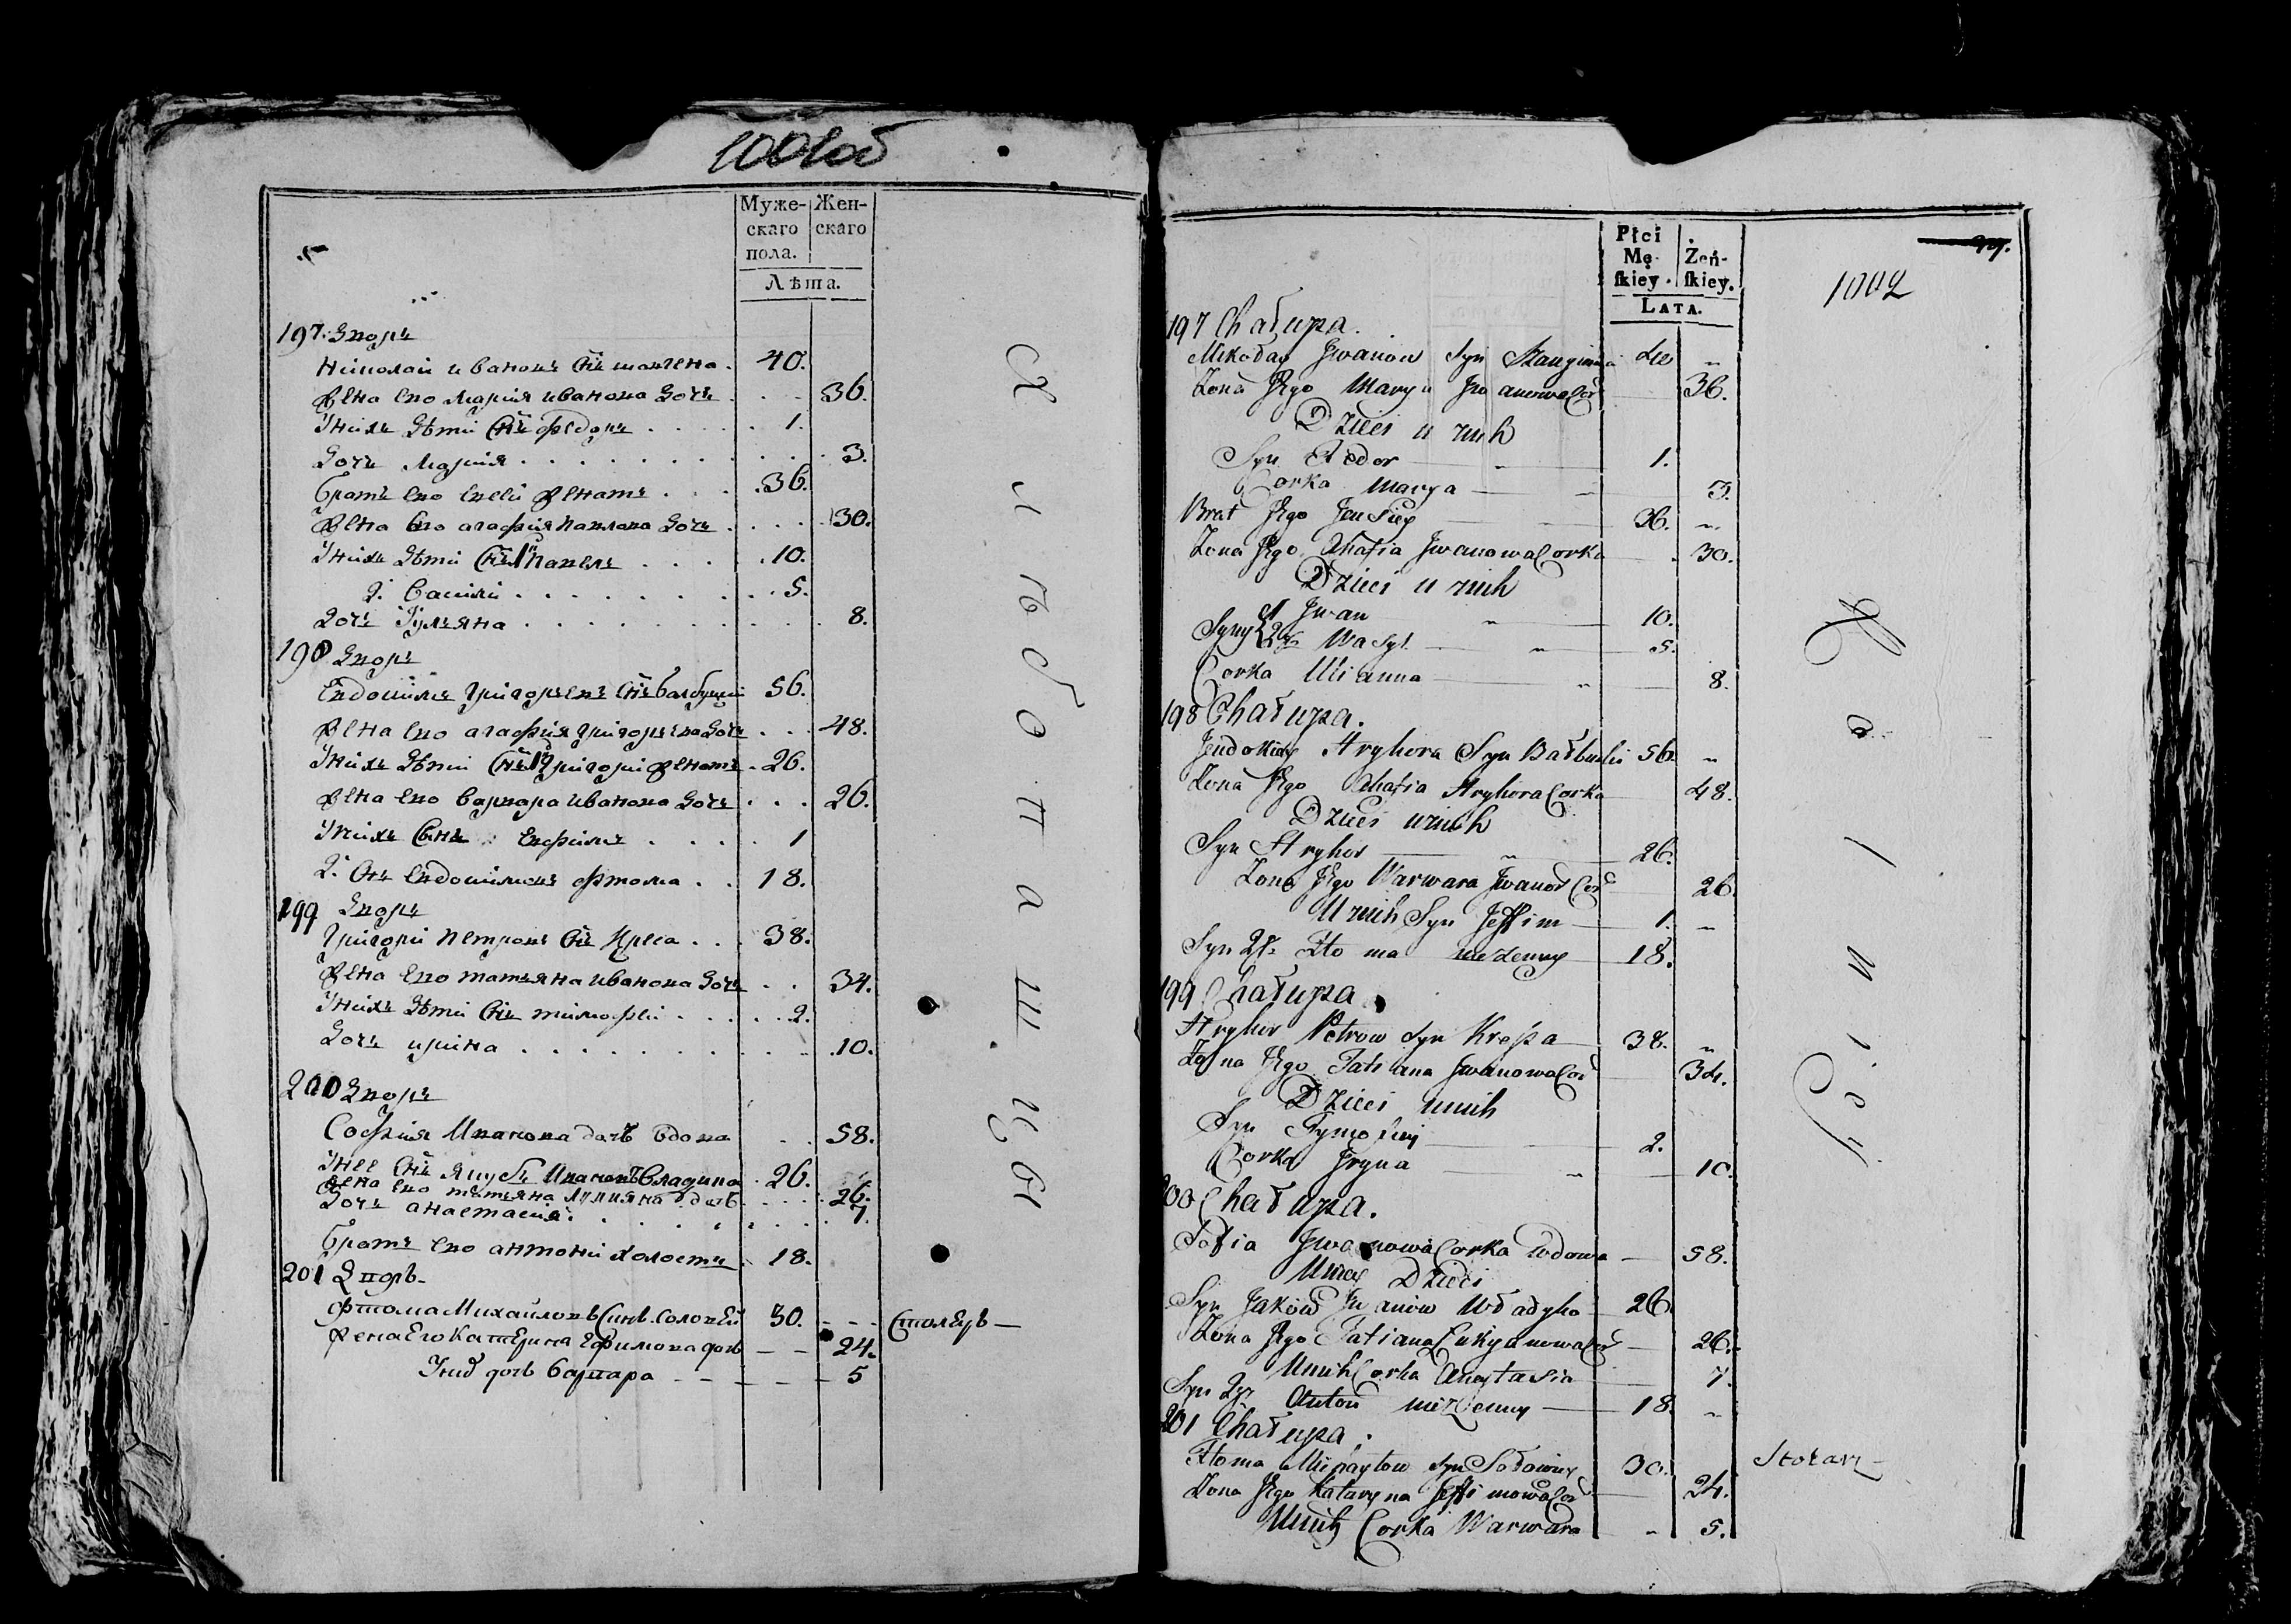 1001об
Муже-
скаго
пола.
Жен-
скаго
Лѣта.
197. Дворъ
Николай Ивановъ Снъ 40.
Жена Его Мария Иванова Дочь 36.
У нихъ Дѣти Снъ Федоръ 1.
Дочь Мария 3.
Братъ Его Евсей Женатъ 36.
Жена Его Агафия Павлова Дочь 30.
У нихъ Дѣти Снъ 1й Павелъ 10.
2. Василий 5.
Дочь Ульяна 8.
198 Дворъ
Евдокимъ Григорьевъ Снъ 56.
Жена Его Агафия Григорьева Дочь 48.
У нихъ Дѣти Снъ 1й Григорий Женатъ 26.
Жена Его Варвара Иванова Дочь 26.
У нихъ Снъ Ефимъ 1
2. Снъ Евдокимовъ Фтома 18.
199 Дворъ
Григорий Петровъ Снъ Креса 38.
Жена Его Татьяна Иванова Дочь 34.
У нихъ Дѣти Снъ Тимофей 2.
Дочь Ирина 10.
200 Дворъ
София Иванова дочь вдова 58.
У нее Снъ Якубъ Ивановъ Владика 26.
Жена Его Татьяна дочь 26.
Дочь Анастасия 7.
Братъ Его Антоний Холостъ 18.
201 Дворъ
Фтома Михайловъ Синъ Соловей 30. Столяръ
Жена Его Катерина Ефимова дочь 24.
У них дочь Варвара 5
Хлѣбопашцы
Płci
Mę-
skiey.
Żeń-
skiey.
LATA.
1002
197 Chałupa.
Mikołay Jwanow Syn 40 "
Zona Jego Marya Jwanowa Cor 36.
Dzieci u nich
Syn Fiedor " 1.
Corka Marya " 3.
Brat Jego Jeusiey 36. "
Zona Jego Ahafia Jwanowa Corka 30.
Dzieci u nich
Syny 1 Jwan " 10.
2gi Wasyl " 5.
Corka Ulianna " 8.
198 Chałupa.
Jeudokim Hryhora Syn 56. "
Zona Jego Ahafia Hryhora Corka 48.
Dzieci u nich
Syn Hryhor " 26.
Zona Jego Warwara Jwanow Cor 26
U nich Syn Jeffim 1. "
Syn 2gi Ftoma niezenny 18.
199 Chałupa
Hryhor Petrow Syn Kressa 38. "
Zona Jego Tatiana Jwanowa Cor 34.
Dzieci u nich
Syn Tymofiey 2.
Corka Jryna " 10.
200 Chałupa.
Sofia Jwanowa Corka wdowa 58.
U niey Dzieci
Syn Jakow Jwanow Władyka 26.
Zona Jego Tatiana Łukijanowa Cor 26.
U nich Corka Anastasia 7.
Syn 2gi Anton niezenny 18. "
201 Chałupa.
Ftoma Michayłow Syn Sołowiey 30. Stolarz
Zona Jego Kataryna Jeffimowa Cor 24.
U nich Corka Warwara " 5.
Rolnicy